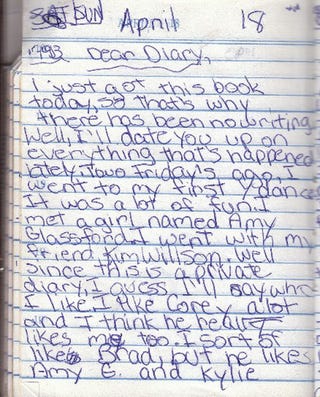 SUN April 18
1993 Dear Diary,
I just got this book
today, so that's why
there has been no writing
Well, I'll date you up on
everything that's happened
lately. Two friday's ago, I
went to my first dance
It was a lot of fun. I
met a girl named Amy
Glassford. I went with my
friend Kim Willson. Well
since this is a private
diary, I guess I'll say who
I like. I like Corey alot
and I think he
likes me too. I sort of
like Brad, but he likes
Amy G. and Kylie